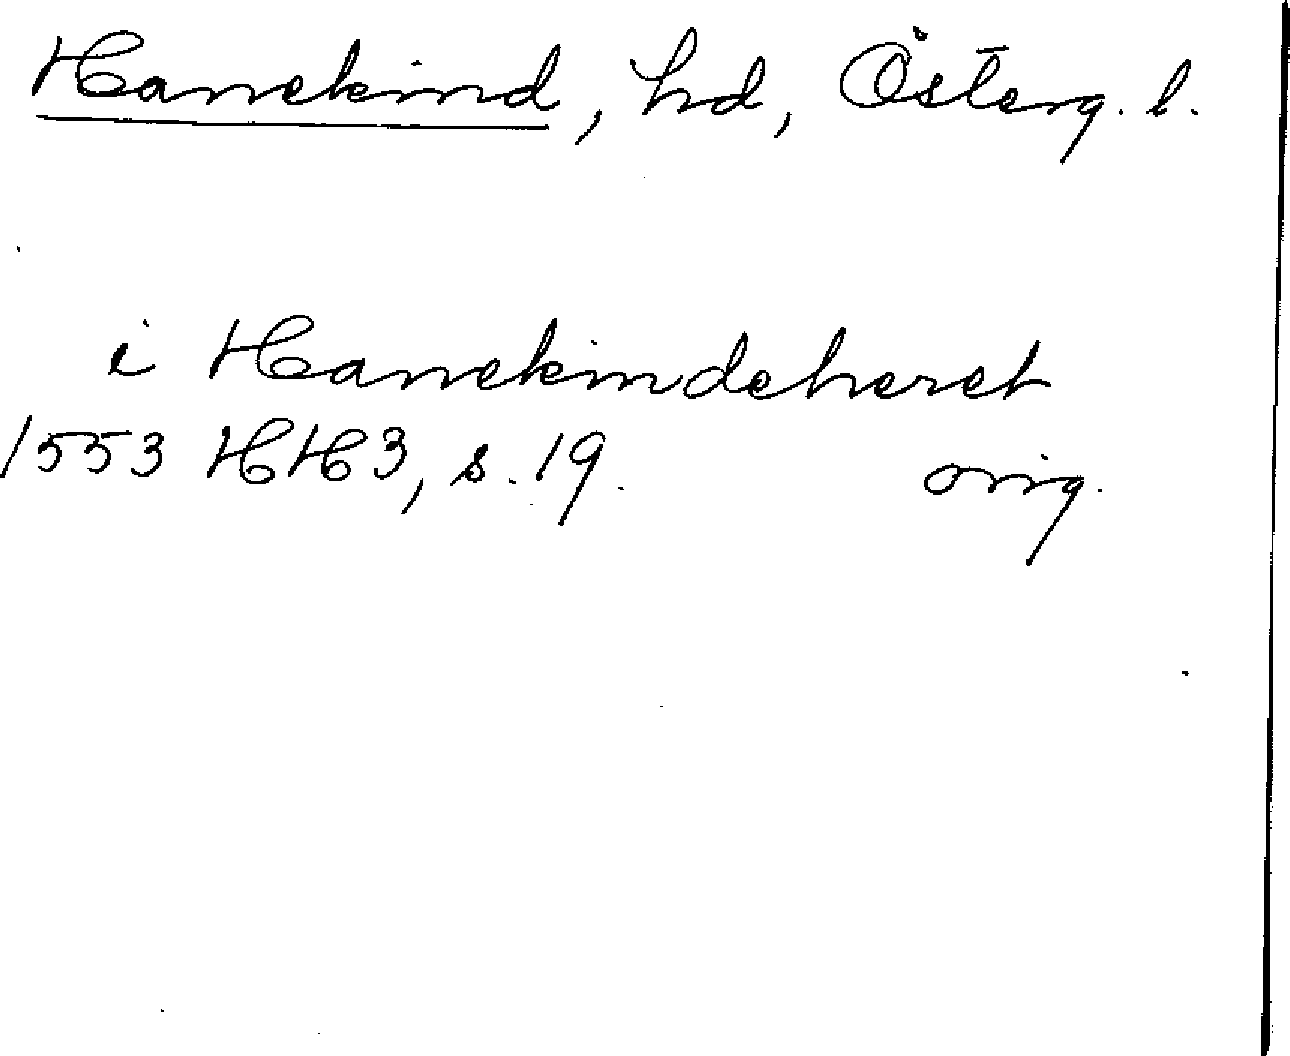 Hanekind, hd, Österg. l.
i Hanekindeheret
1553 HH3, s. 19. orig.